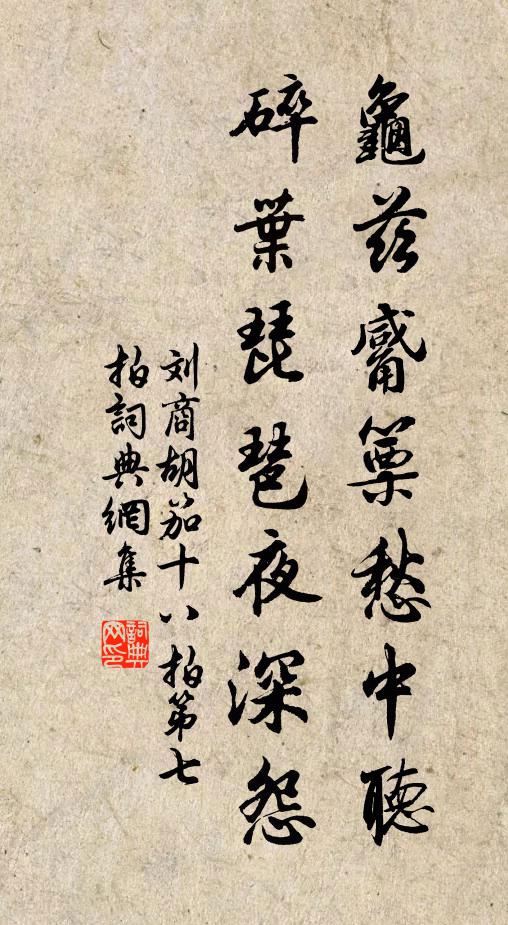 龜茲觱篥愁中聽
碎葉琵琶夜深怨
刘商胡笳十八拍第七
拍詞典網集
詞典
网印